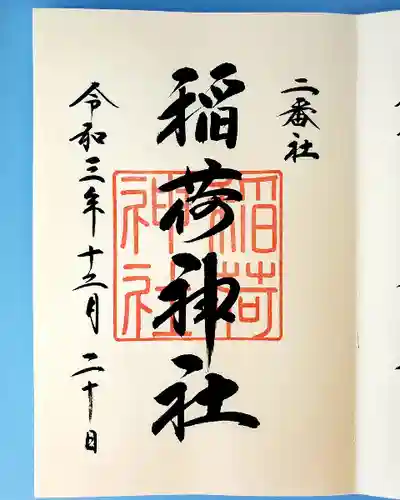 二番社
稲荷神社
稲荷
神社
令和三年十二月二十日